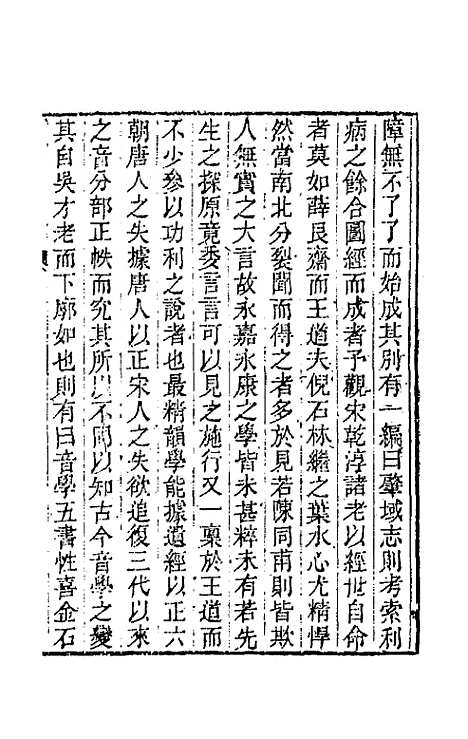 障無不了了而始成其別有一編曰肇域志則考索利
病之餘合圖經而成者予觀宋乾淳諸老以經世自命
者莫如薛艮齋而王道夫倪石林繼之葉水心尤精悍
然當南北分裂聞而得之者多於見若陳同甫則皆欺
人無實之大言故永嘉永康之學皆未甚粹未有若先
生之探原竟委言言可以見之施行又一稟於王道而
不少參以功利之說者也最精韻學能據遺經以正六
朝唐人之失據唐人以正宋人之失欲追復三代以來
之音分部正帙而究其所以不同以知古今音學之變
其自吳才老而下廓如也則有曰音學五書性喜金石